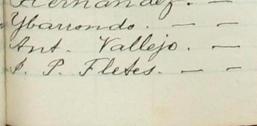 Hernandez. —
Ybarrondo. — —
Ant. Vallejo. — —
P. Fletes. — —